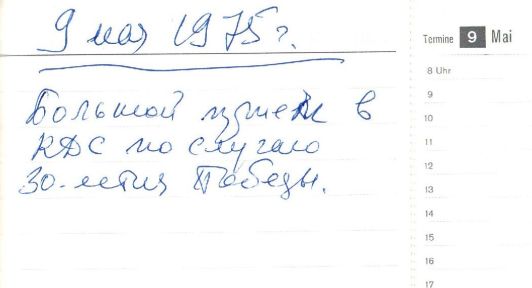 9 мая 1975 г.
Termine 9 Mai
Большой прием в
КДС по случаю
30-летия Победы.
8 Uhr
9
10
11
12
13
14
15
16
17